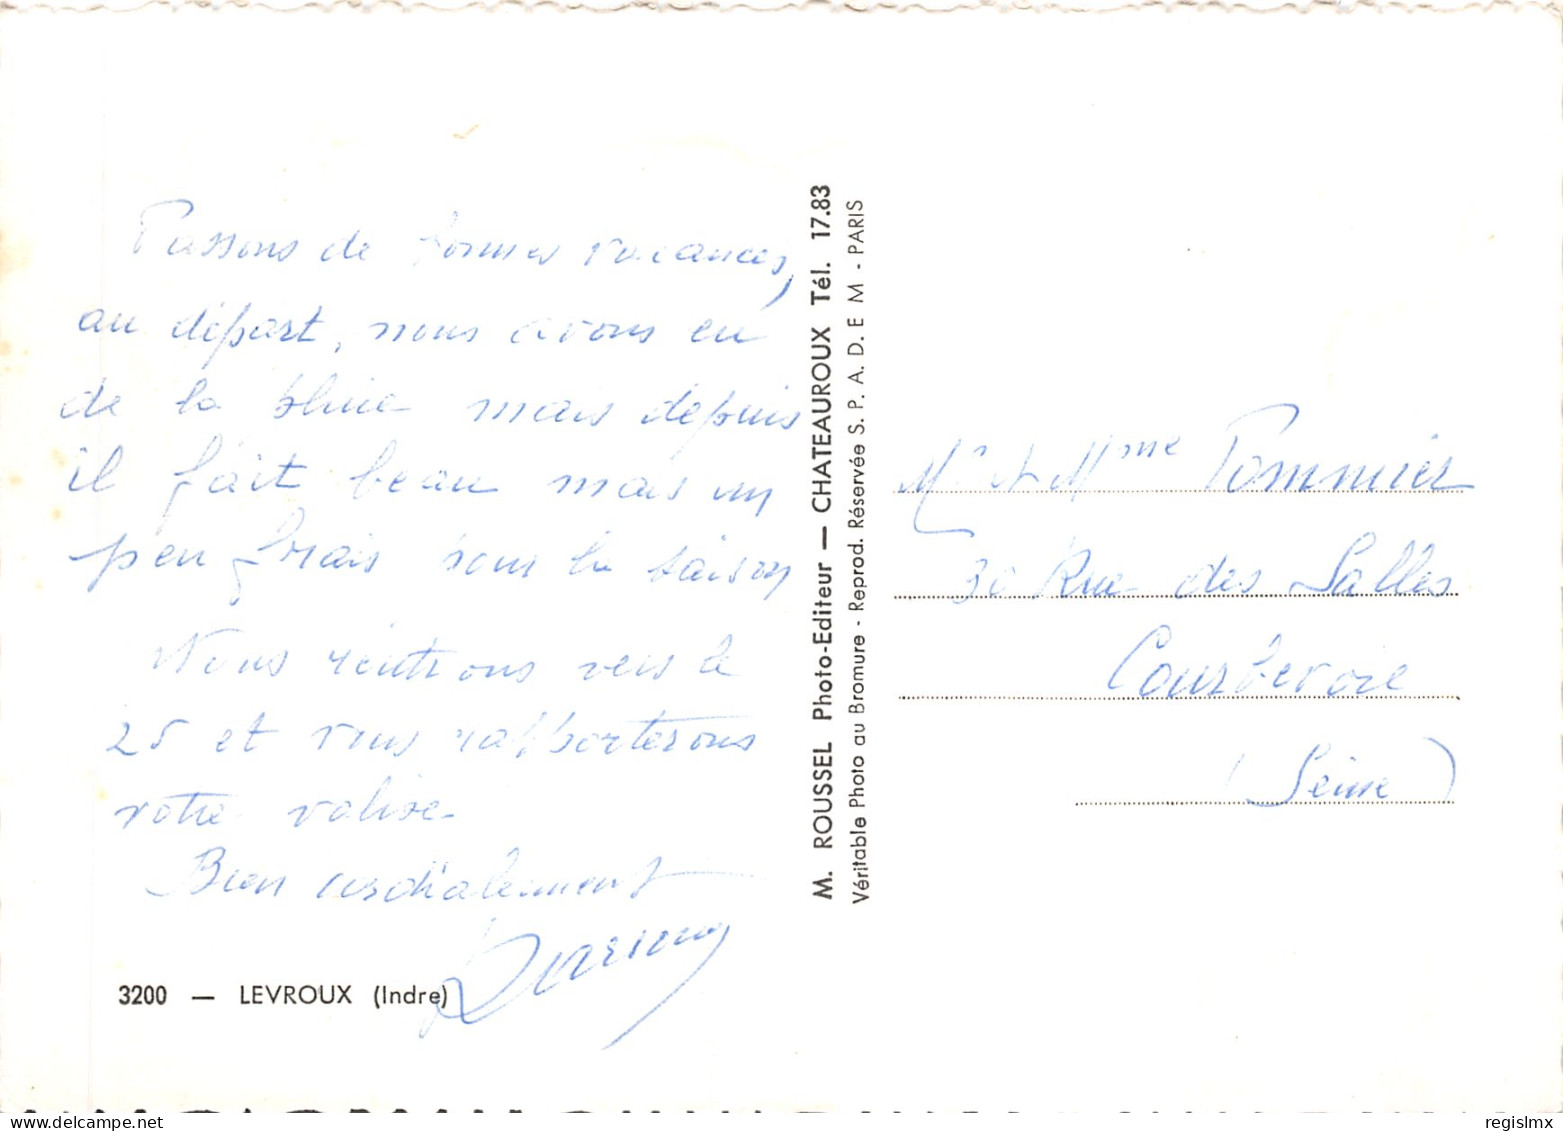 Passons de bonnes vacances,
au départ, nous avons eu
de la pluie mais depuis
il fait beau mais un
peu frais pour la saison
Nous rentrons vers le
25 et vous rapporterons
votre valise
Bien cordialement
3200 — LEVROUX (Indre)
M. ROUSSEL Photo-Editeur — CHATEAUROUX Tél. 17.83
Véritable Photo au Bromure - Reprod. Réservée S. P. A. D. E M - PARIS
Mr et Mme Pommier
30 Rue des Salles
Courbevoie
(Seine)
regislmx